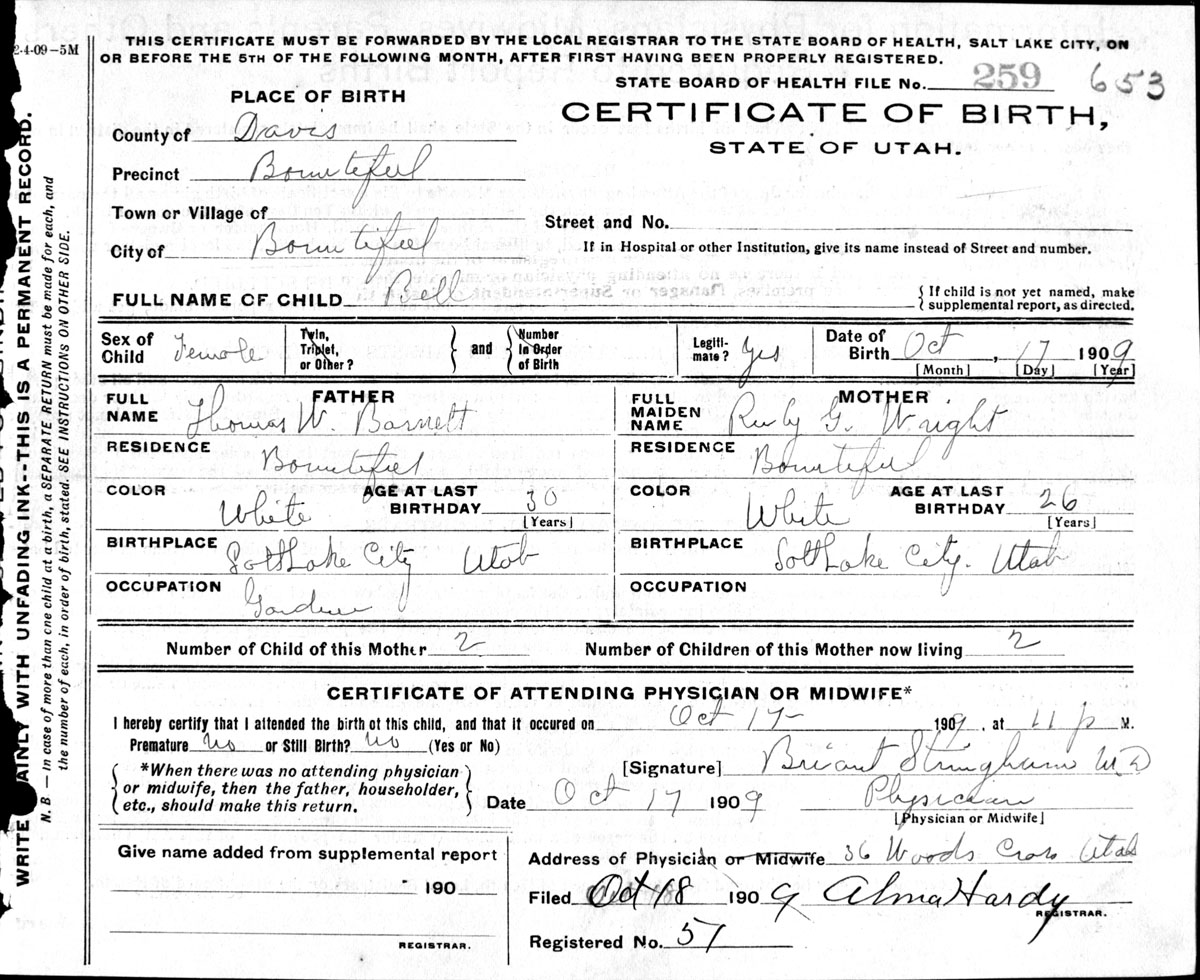 2-4-09-5M
THIS CERTIFICATE MUST BE FORWARDED BY THE LOCAL REGISTRAR TO THE STATE BOARD OF HEALTH, SALT LAKE CITY, ON
OR BEFORE THE 5TH OF THE FOLLOWING MONTH, AFTER FIRST HAVING BEEN PROPERLY REGISTERED.
STATE BOARD OF HEALTH FILE No. 259 653
PLACE OF BIRTH
CERTIFICATE OF BIRTH,
STATE OF UTAH.
County of Davis
Precinct Bountiful
Town or Village of
Street and No.
City of Bountiful
If in Hospital or other Institution, give its name instead of Street and number.
FULL NAME OF CHILD Bell
If child is not yet named, make
supplemental report, as directed.
Sex of Child Female
Twin, Triplet, or Other? and Number In Order of Birth
Legiti-mate? Yes
Date of Birth Oct, 17 1909
[Month] [Day] [Year]
FATHER
FULL NAME Thomas W. Barnett
RESIDENCE Bountiful
COLOR White AGE AT LAST BIRTHDAY 30
[Years]
BIRTHPLACE Salt Lake City Utah
OCCUPATION Gardner
MOTHER
FULL MAIDEN NAME Ruby G. Wright
RESIDENCE Bountiful
COLOR White AGE AT LAST BIRTHDAY 26
[Years]
BIRTHPLACE Salt Lake City. Utah
OCCUPATION
Number of Child of this Mother 2 Number of Children of this Mother now living 2
CERTIFICATE OF ATTENDING PHYSICIAN OR MIDWIFE*
I hereby certify that I attended the birth of this child, and that it occured on Oct 17- 1909, at 11 p M.
Premature No or Still Birth? No (Yes or No)
*When there was no attending physician
or midwife, then the father, householder,
etc., should make this return.
[Signature] Briant Stringham M.D
Date Oct 17 1909 Physician
[Physician or Midwife]
Give name added from supplemental report
190
REGISTRAR.
Address of Physician or Midwife 36 Woods Cross Utah
Filed Oct 18 1909 Alma Hardy
REGISTRAR.
Registered No. 51
WRITE AINLY WITH UNFADING INK--THIS IS A PERMANENT RECORD.
N. B. — In case of more than one child at a birth, a SEPARATE RETURN must be made for each, and
the number of each, in order of birth, stated. SEE INSTRUCTIONS ON OTHER SIDE.